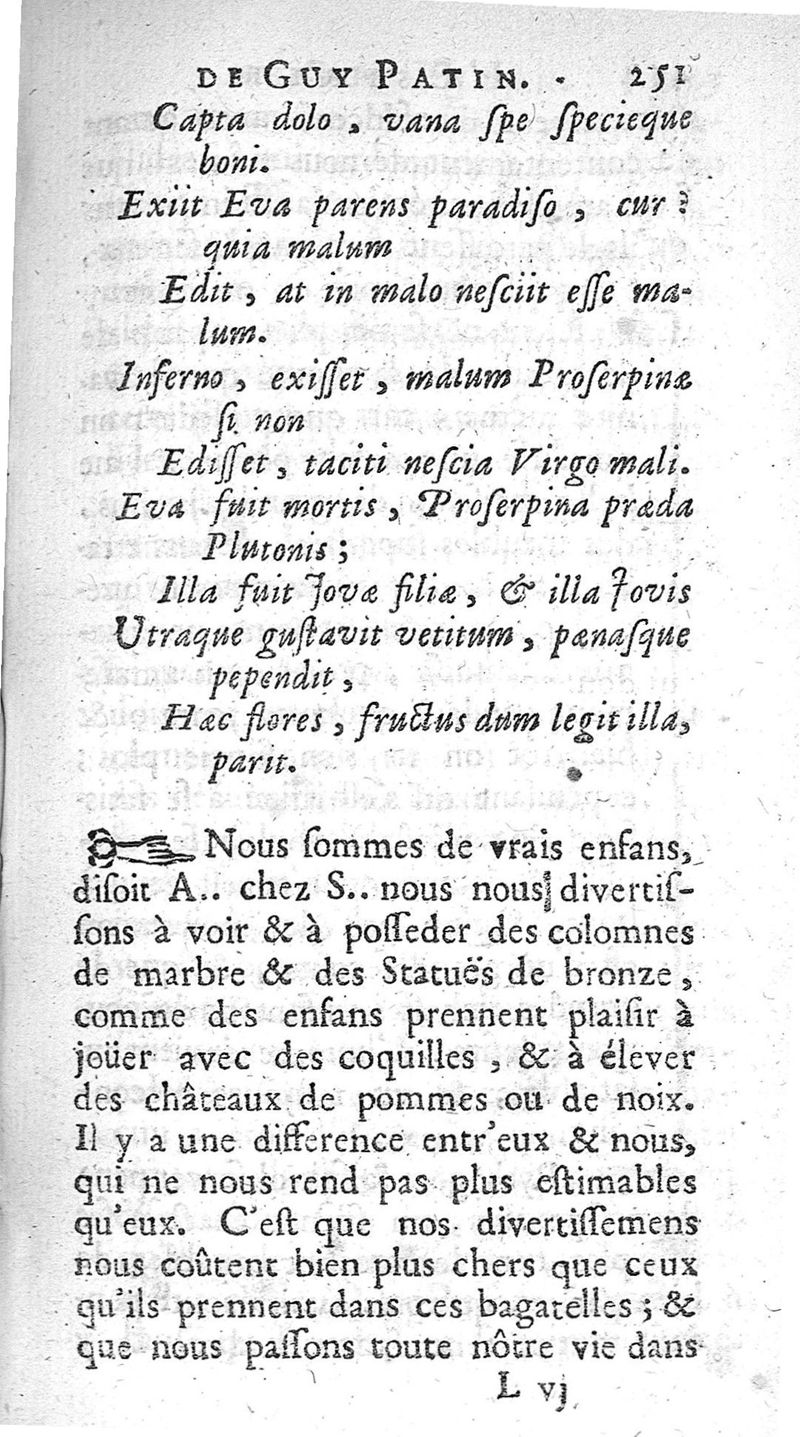 DE GUY PATIN. 251
Capta dolo, vana ſpe ſpecieque
boni.
Exiit Eva parens paradiſo, cur?
quia malum
Edit, at in malo neſciit eſſe ma-
lum.
Inferno, exiſſet, malum Proſerpinæ
ſi non
Ediſſet, taciti neſcia Virgo mali.
Eva fuit mortis, Proſerpina præda
Plutonis;
Illa fuit Jovæ filiæ, & illa Jovis
Utraque guſtavit vetitum, pœnaſque
pependit,
Hæc flores, fructus dum legit illa,
parit.
☞ Nous ſommes de vrais enfans,
diſoit A.. chez S.. nous nous divertiſ-
ſons à voir & à poſſeder des colomnes
de marbre & des Statuës de bronze,
comme des enfans prennent plaiſir à
joüer avec des coquilles, & à élever
des châteaux de pommes ou de noix.
Il y a une difference entr'eux & nous,
qui ne nous rend pas plus eſtimables
qu'eux. C'eſt que nos divertiſſemens
nous coûtent bien plus chers que ceux
qu'ils prennent dans ces bagatelles; &
que nous paſſons toute nôtre vie dans
L vj